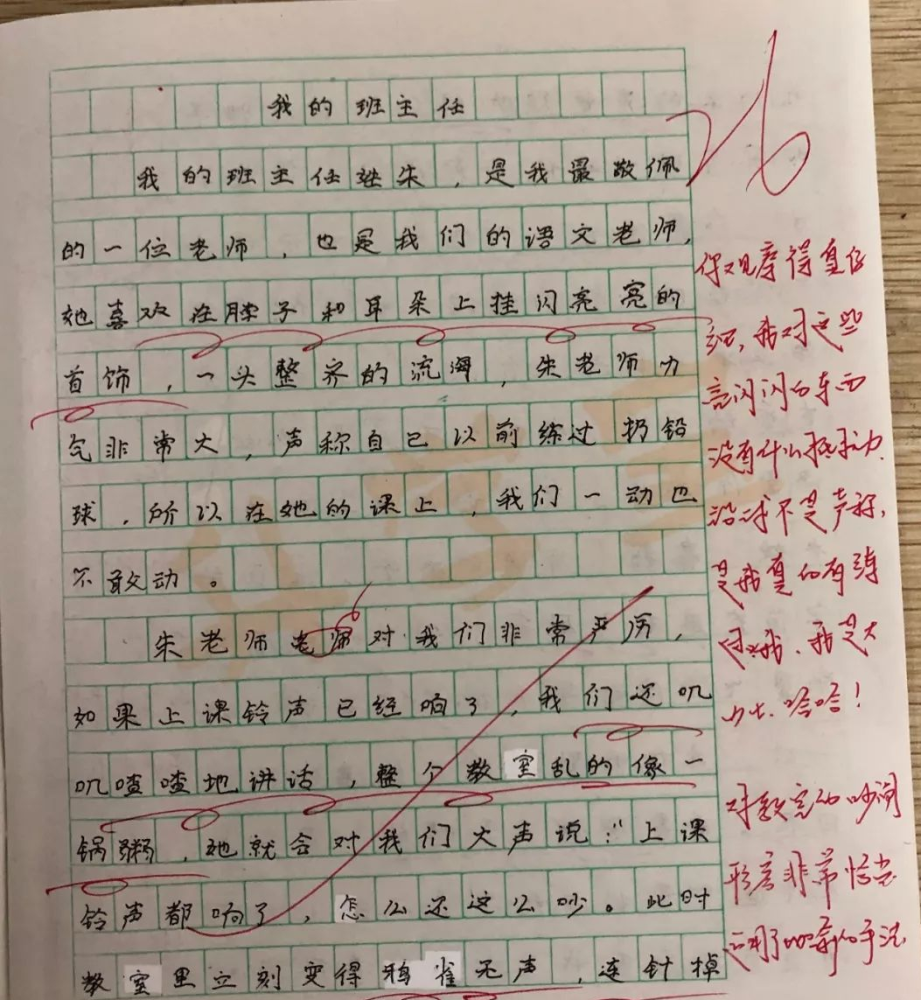 我的班主任
26
我的班主任姓朱，是我最敬佩
的一位老师，也是我们的语文老师，
她喜欢在脖子和耳朵上挂闪亮亮的
首饰，一头整齐的流海，朱老师力
气非常大，声称自己以前练过扔铅
球，所以在她的课上，我们一动也
不敢动。
朱老师老师对我们非常严厉，
如果上课铃声已经响了，我们还叽
叽喳喳地讲话，整个教室乱的像一
锅粥，她就会对我们大声说：“上课
铃声都响了，怎么还这么吵。此时
教室里立刻变得鸦雀无声，连针掉
你观察得真仔
细，我对这些
亮闪闪的东西
没有什么抵抗力
不是声称，
是我真的有练
我是大
力士，哈哈！
对教室的吵闹
形容非常恰当
运用了比喻的手法